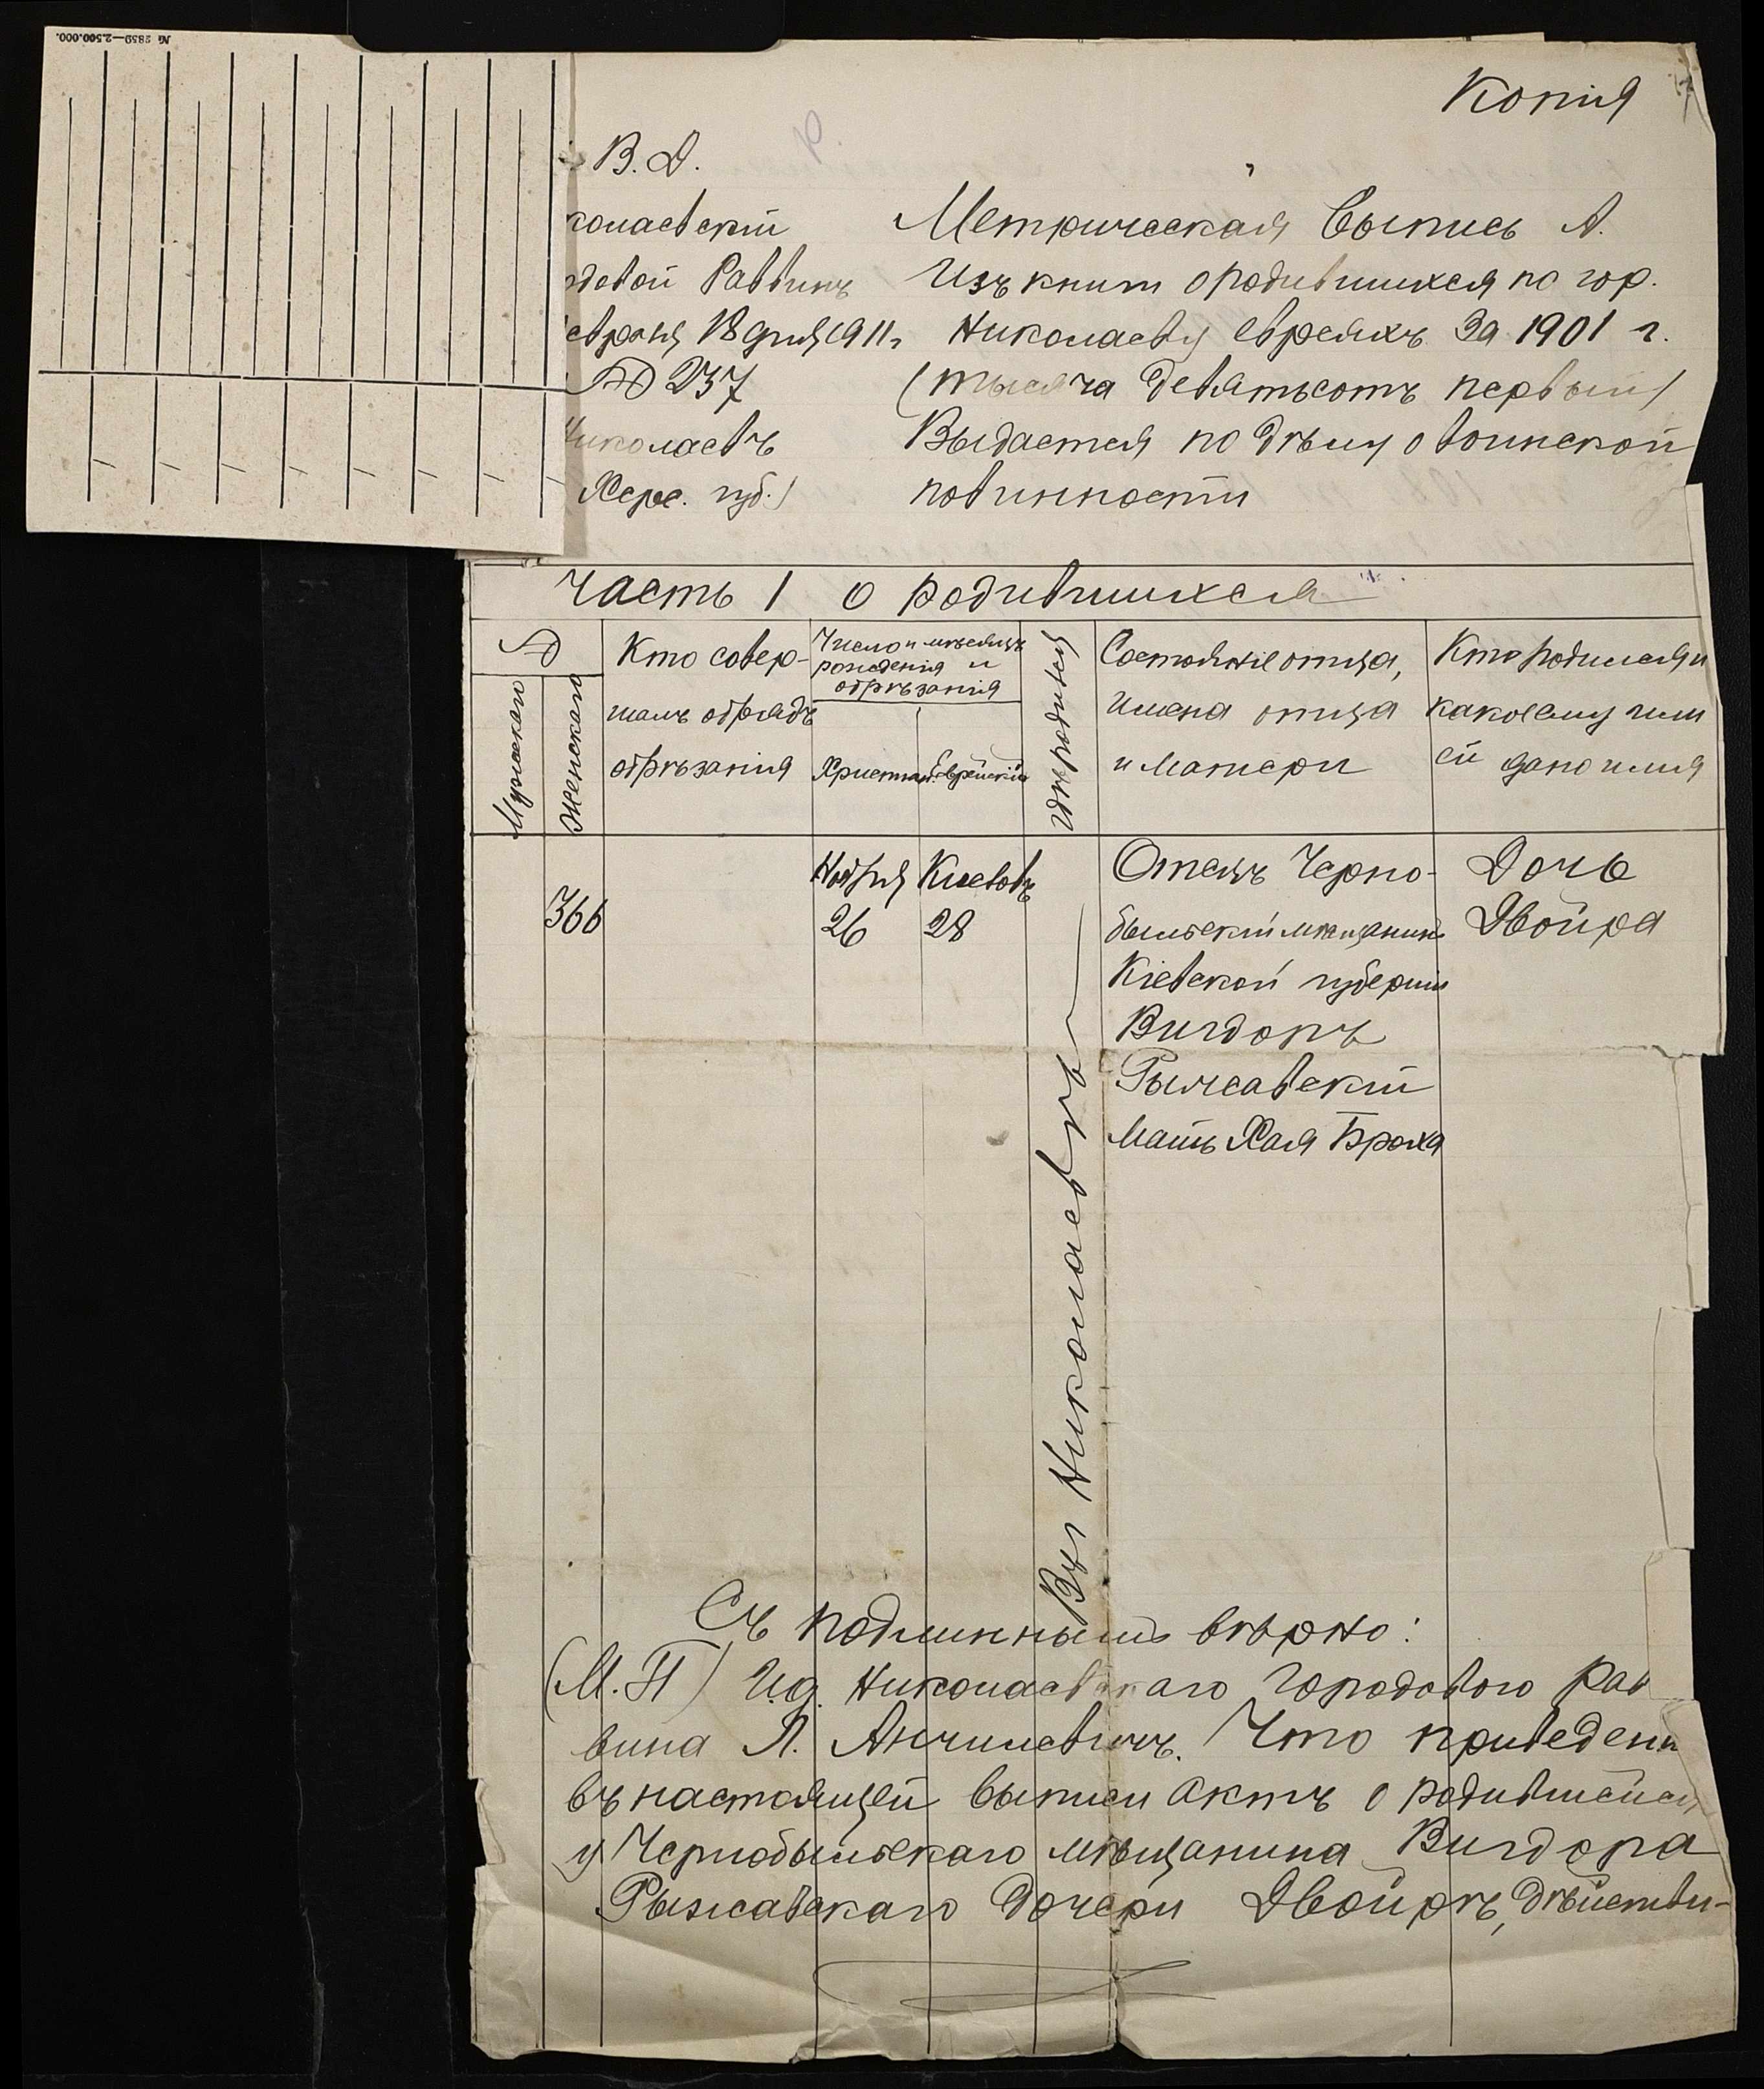 № 2859—2.500.000.
Копія
В. Д.
колаевскій
одовой Раввинъ
евраля 18 дня 1911 г.
№ 237
Николаевъ
Херс. губ.)
Метрическая Выпись А.
Изъ книги о родившихся по гор.
Николаеву евреяхъ За 1901 г.
(тысяча девятьсотъ первый)
Выдается по дѣлу о воинской
повинности
Часть 1 о родившихся
№
Мужескаго
Женскаго
Кто совер-
шалъ обрядъ
обрѣзанія
Число и мѣсяцъ
рожденія и
обрѣзанія
Христіан.
Еврейскій
Гдѣ родился
Состояніе отца,
имена отца
и матери
Кто родился и
какое ему или
ей дано имя
366
Ноября
26
Кислевъ
28
Въ Николаевѣ
Отецъ Черно-
быльскій мѣщанинъ
Кіевской губерніи
Вигдоръ
Рыжавскій
Мать Хая Броха
Дочь
Двойра
Съ подлиннымъ вѣрно:
(М.П) И.д. Николаевскаго Городового Рав
вина Л. Анчилевичъ. Что приведенн
въ настоящей выписи актъ о родившейся
у Чернобыльскаго мѣщанина Вигдора
Рыжавскаго дочери Двойрѣ, дѣйстви-